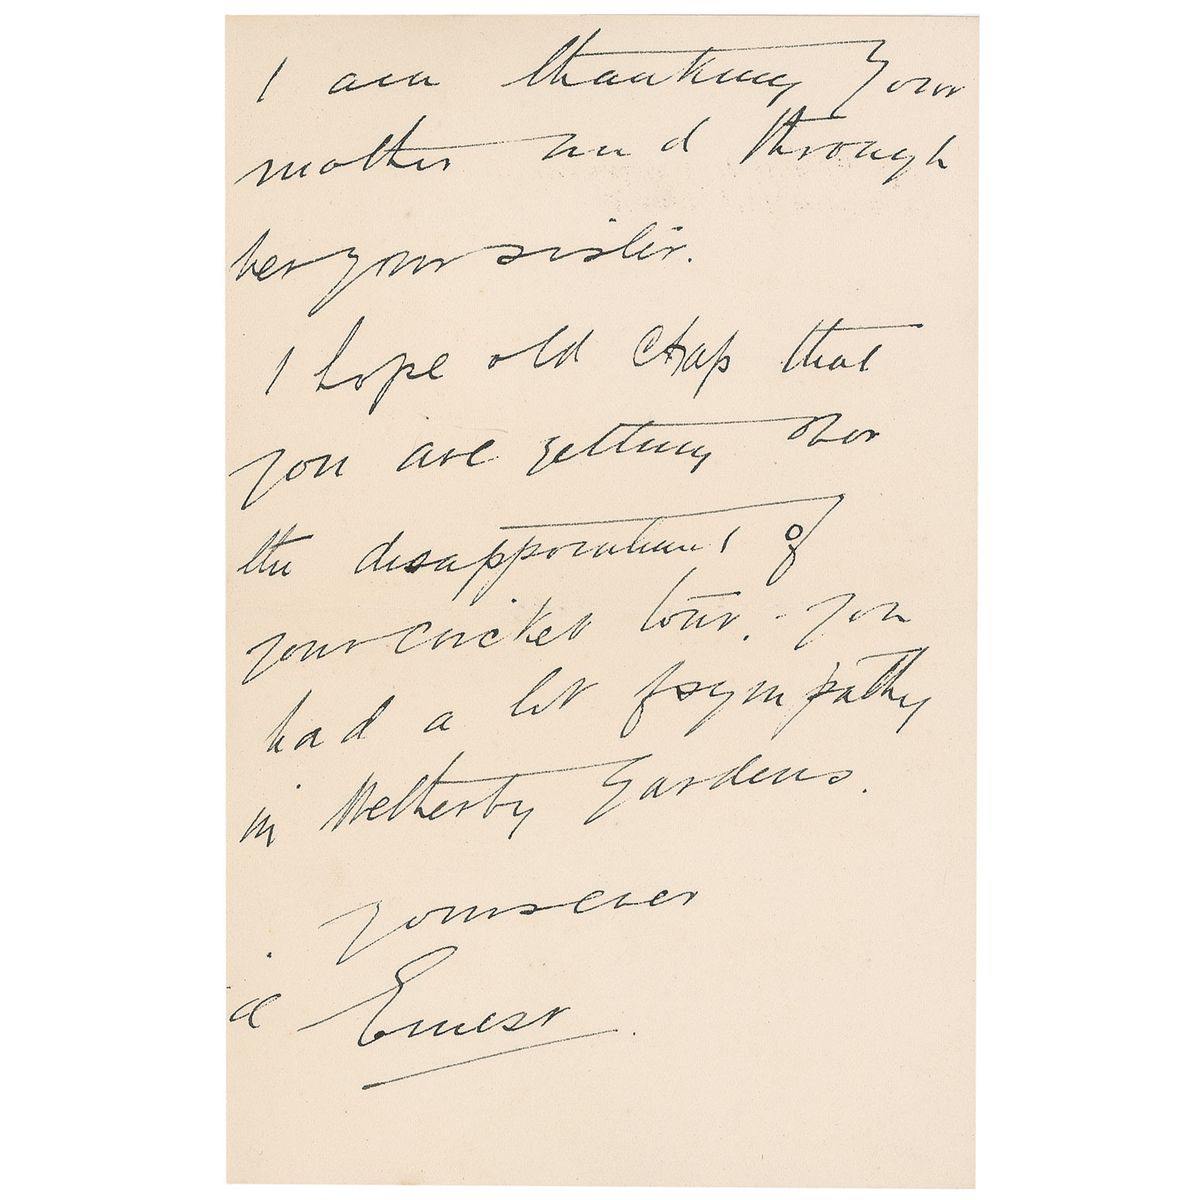 I am thanking your
mother and through
her your sister.
I hope old chap that
you are getting over
the disappointment of
your cricket tour. - you
had a lot of sympathy
in Wetherby Gardens.
yours ever
Ernest